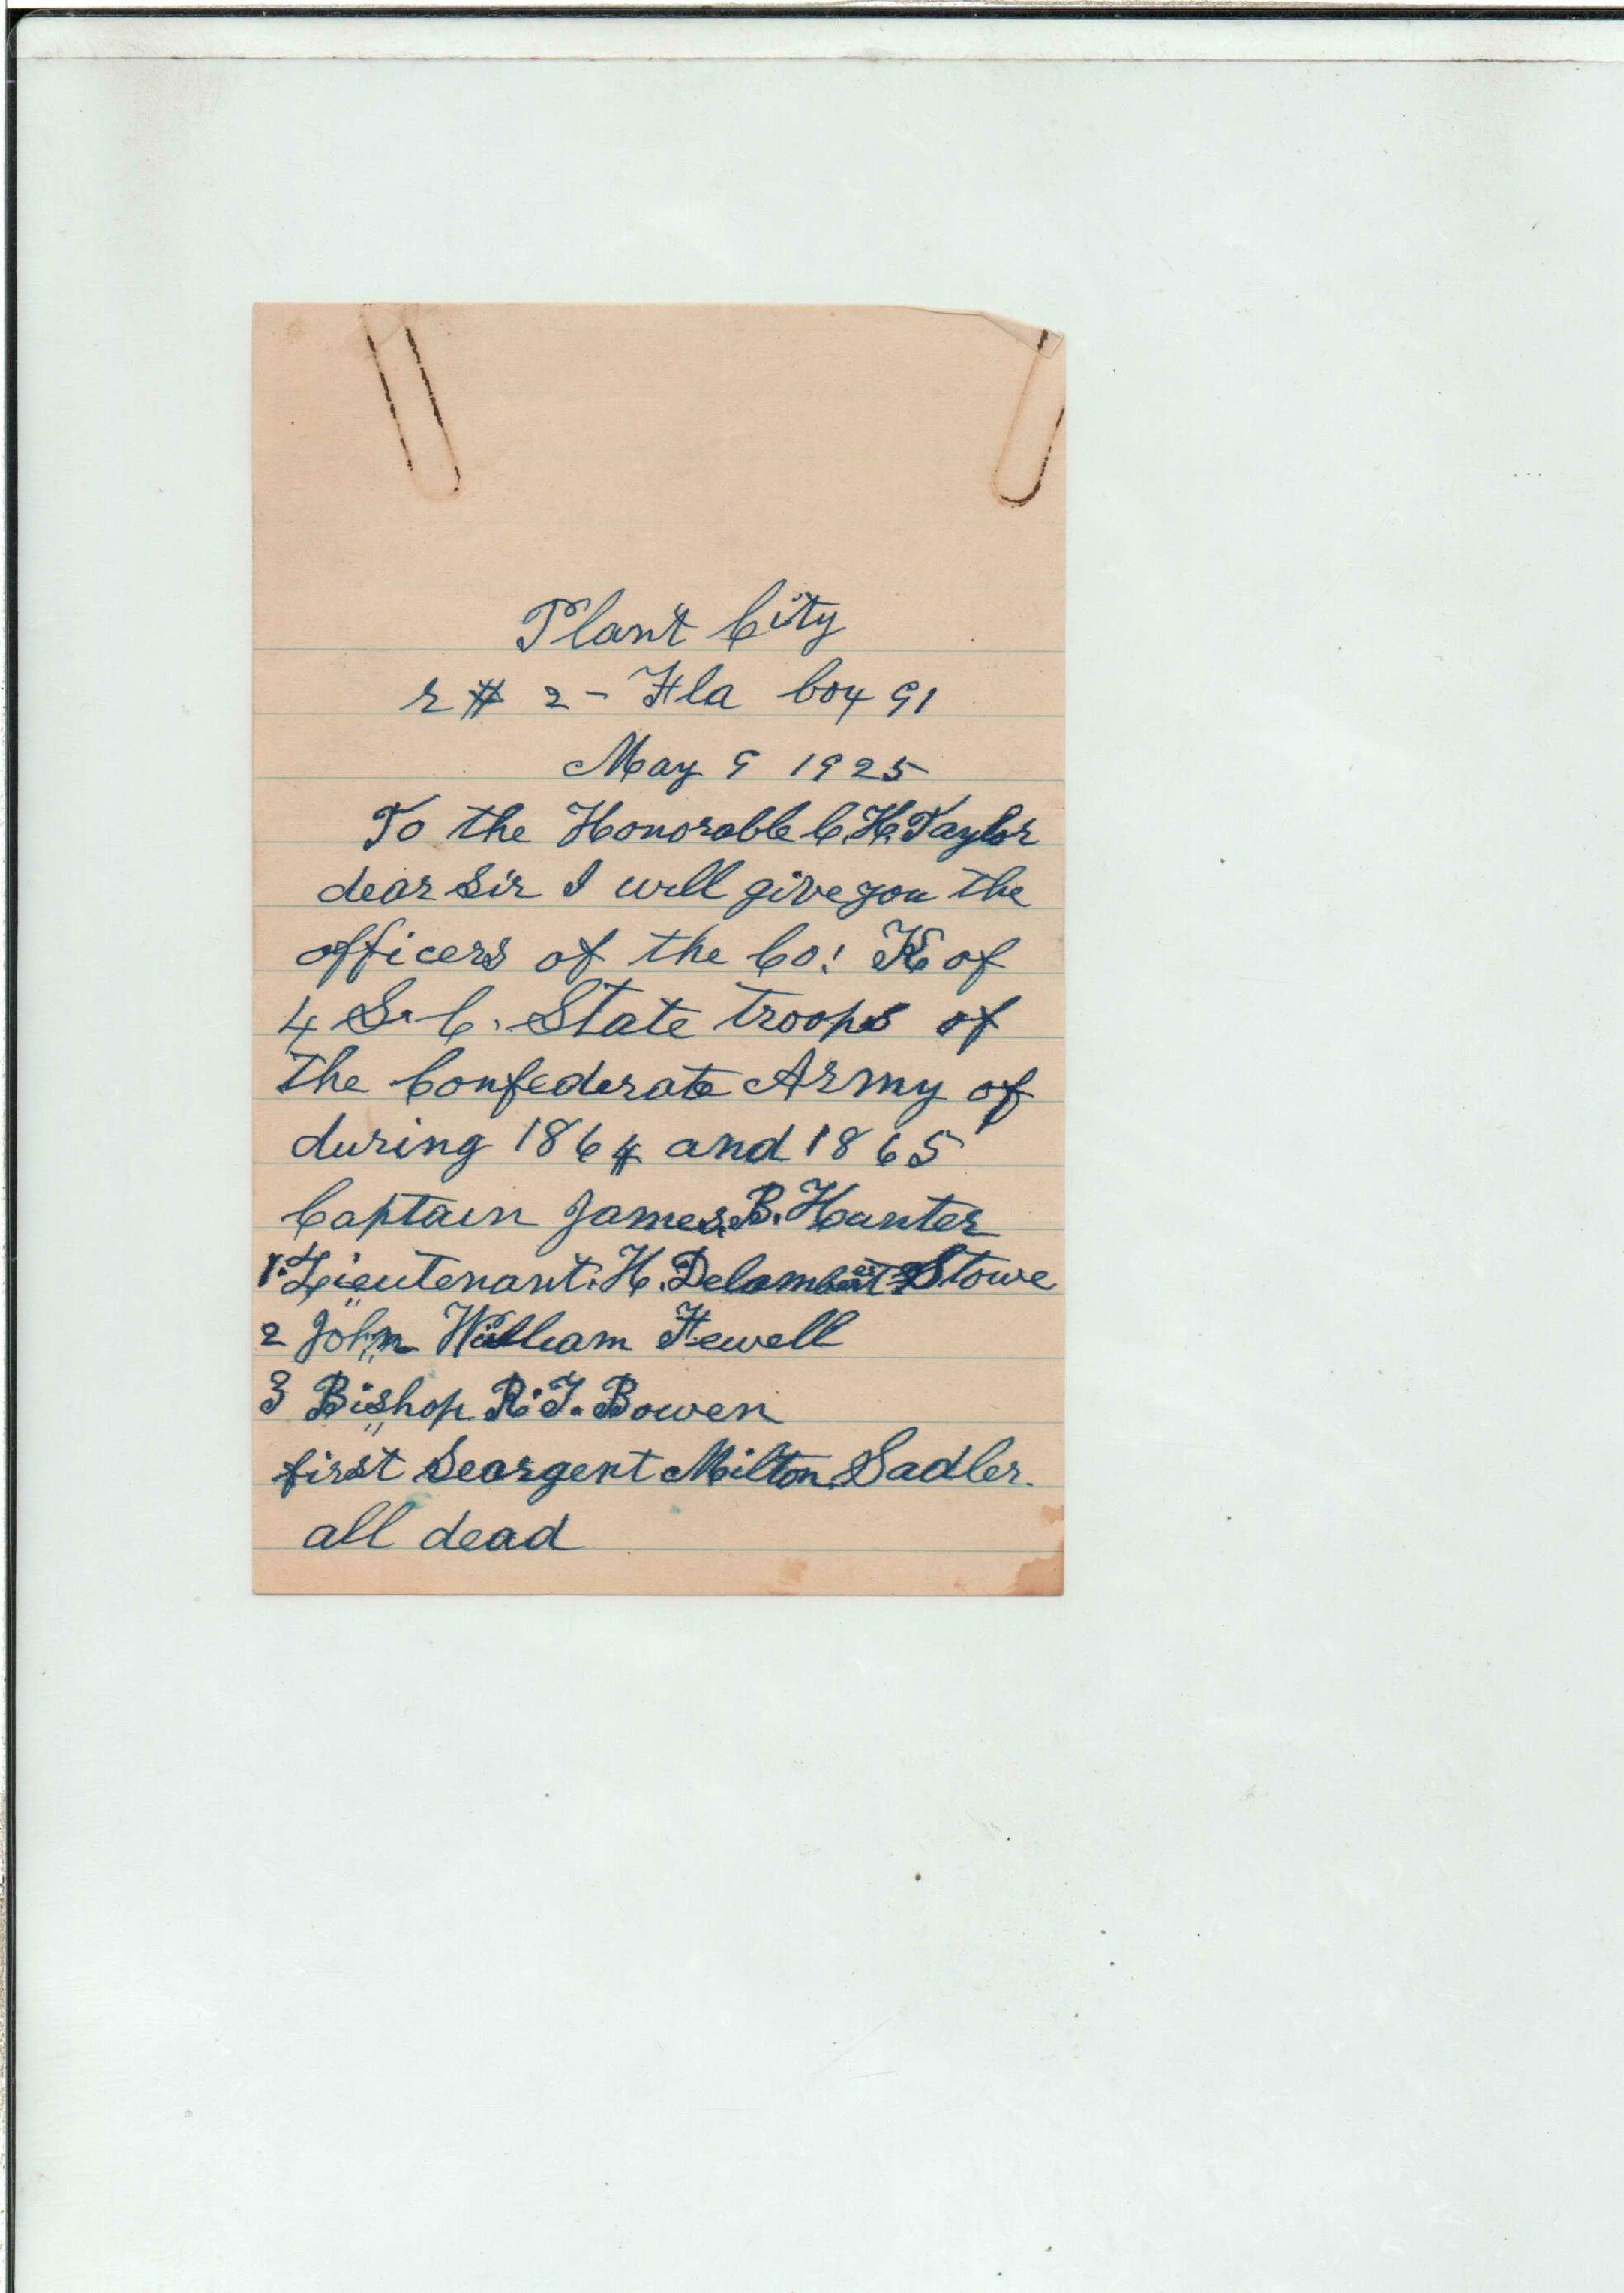 Plant City
r # 2 - Fla box 91
May 9 1925
To the Honorable C.H. Taylor
dear Sir I will give you the
officers of the Co: K of
4 S. C. State troops of
the Confederate Army of
during 1864 and 1865
Captain James. B. Hunter
1. Lieutenant. H. Stowe
2 " John William Fewell
3 " Bishop R. T. Bowen
first Seargent Milton Sadler.
all dead